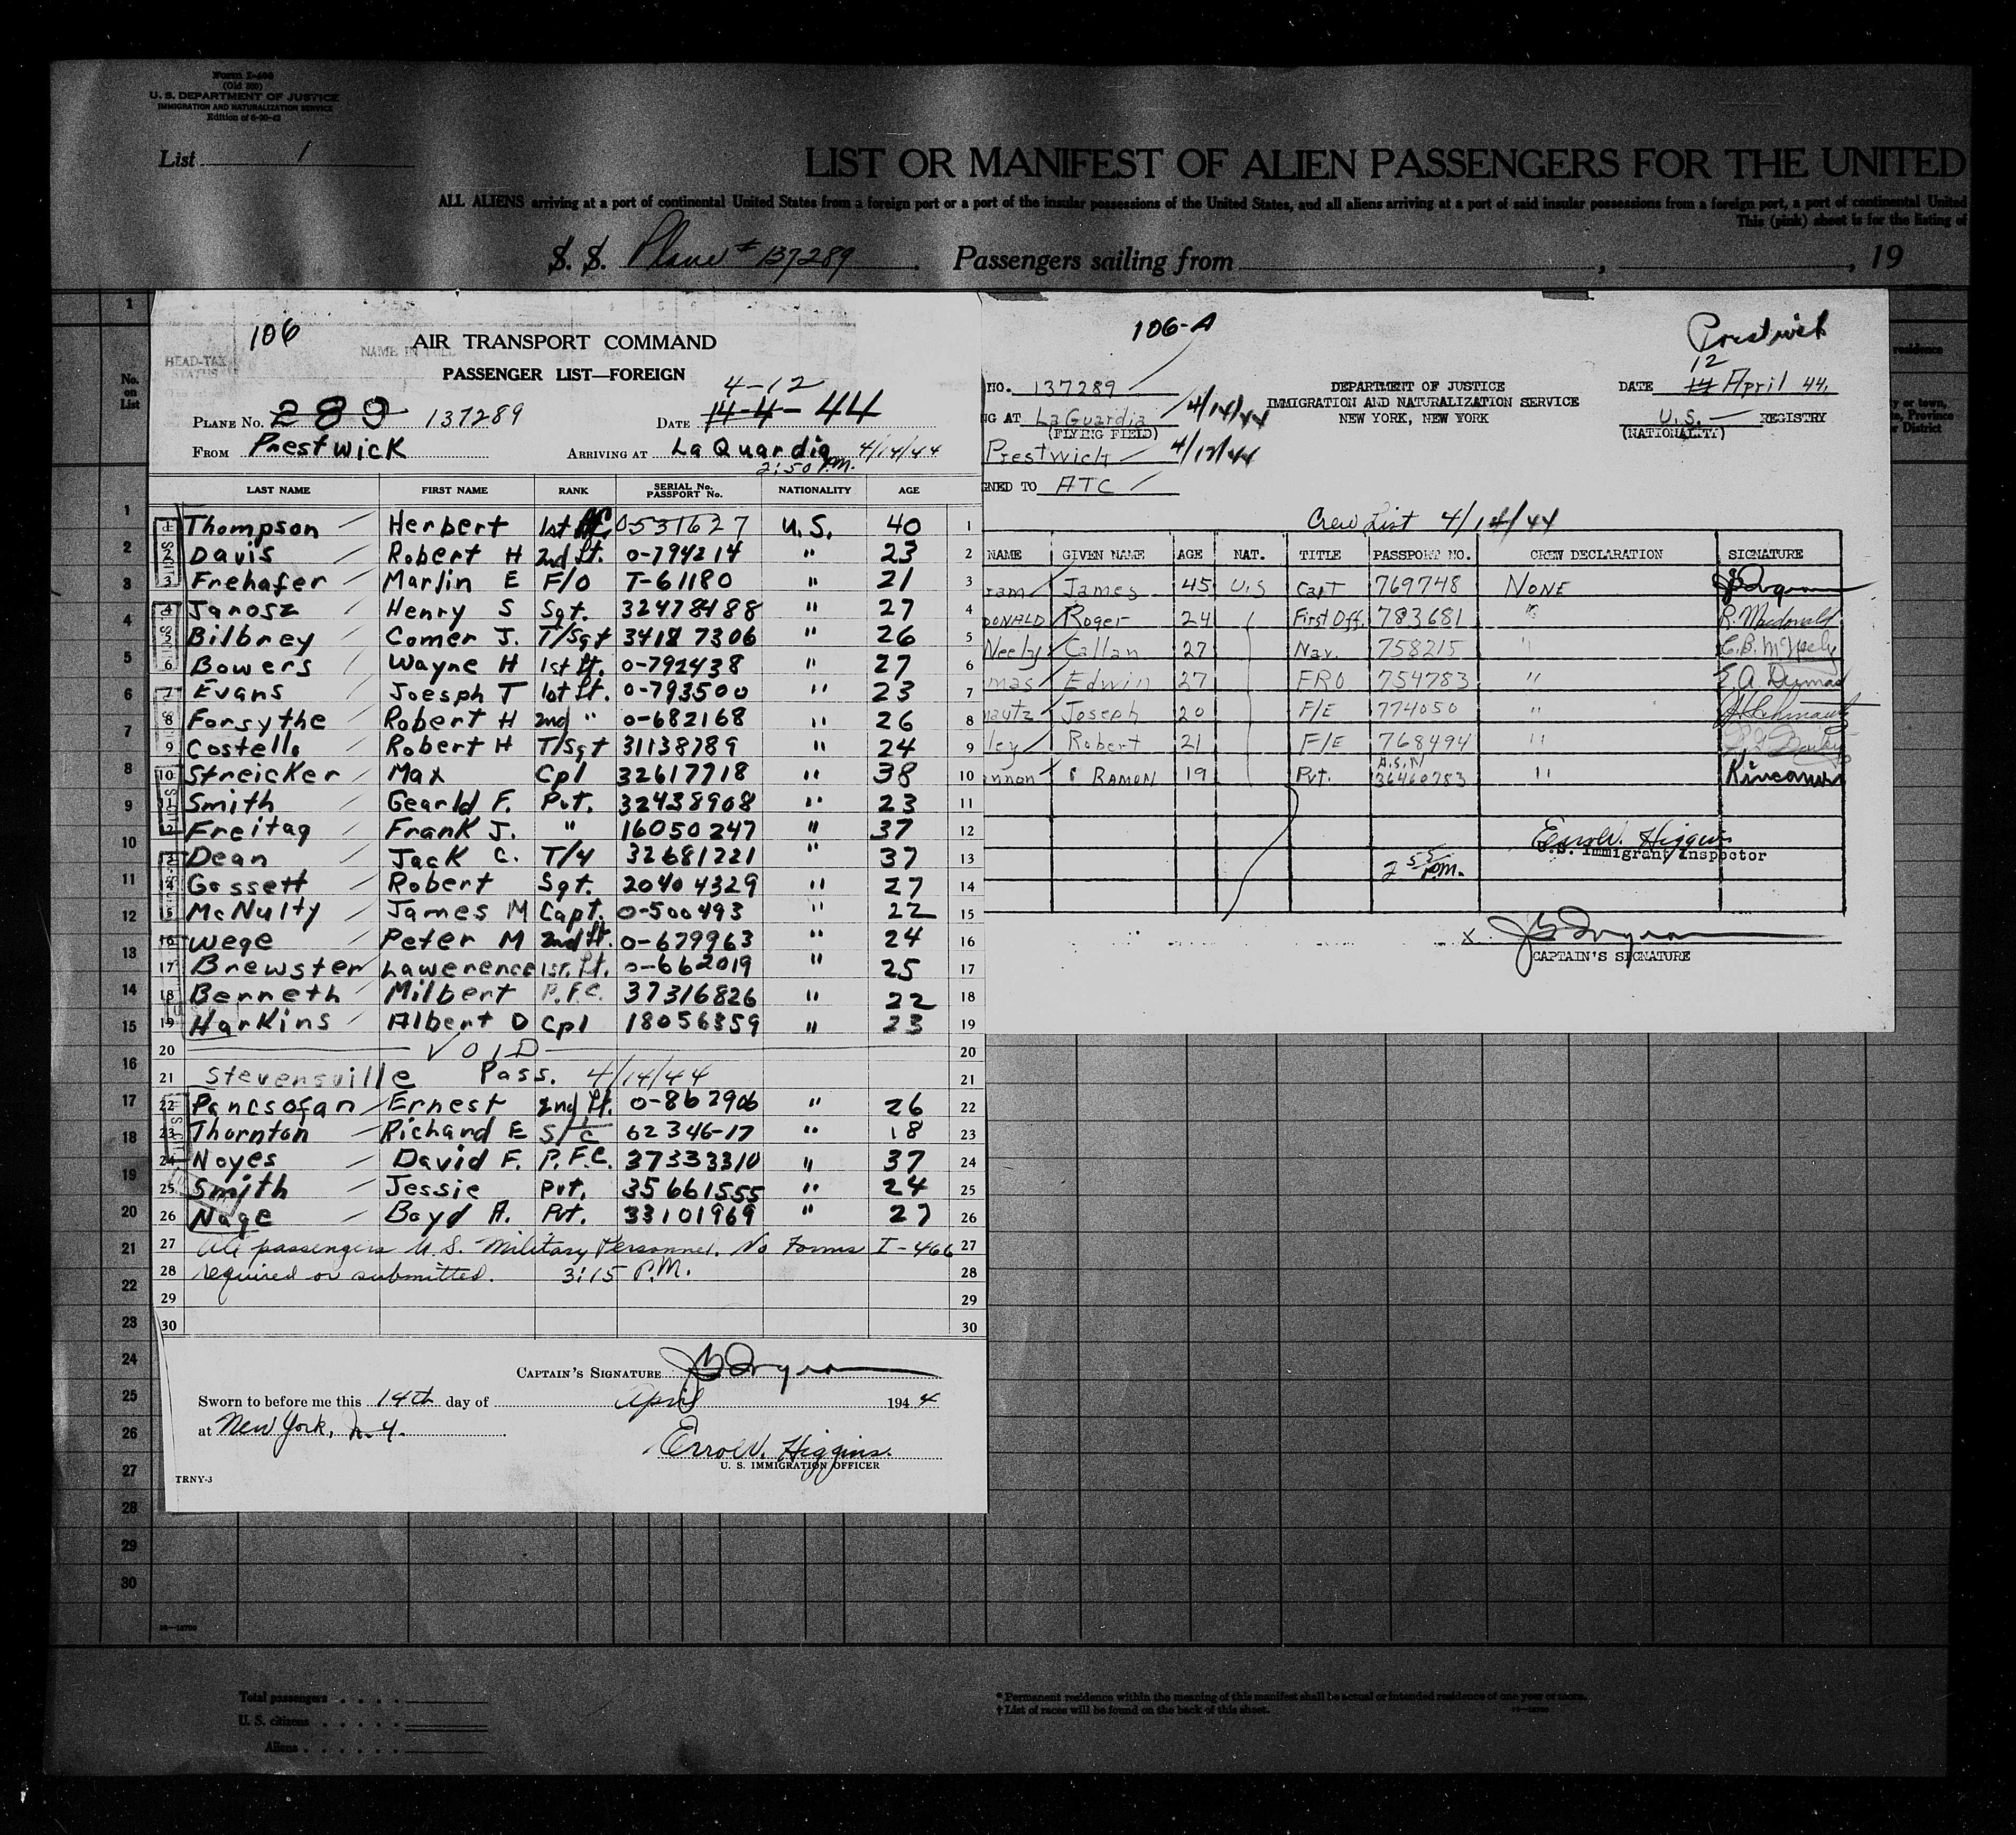 Form I-466
(Old 500)
U. S. DEPARTMENT OF JUSTICE
IMMIGRATION AND NATURALIZATION SERVICE
List 1
LIST OR MANIFEST OF ALIEN PASSENGERS FOR THE UNITED
ALL ALIENS arriving at a port of continental United States from a foreign port or a port of the insular possessions of the United States, and all aliens arriving at a port of said insular possessions from a foreign port, a port of continental United
This (pink) sheet is for the listing of
S. S. Plane # 137289 Passengers sailing from , , 19
No. on List
106
AIR TRANSPORT COMMAND
HEAD-TAX STATUS NAME IN FULL
PASSENGER LIST—FOREIGN
4-12
PLANE No. 289 137289 DATE 14-4-44
FROM Prestwick ARRIVING AT La Quardia 4/14/44
2:50 P.M.
LAST NAME FIRST NAME RANK SERIAL No. PASSPORT No. NATIONALITY AGE
1 Thompson Herbert 1st Lt. 0531627 U.S. 40 1
2 Davis Robert H 2nd Lt. 0-794214 " 23 2
3 Frehafer Marlin E F/O T-61180 " 21 3
4 Jarosz Henry S Sgt. 32478488 " 27 4
5 Bilbrey Comer J. T/Sgt 34187306 " 26 5
6 Bowers Wayne H 1st Lt. 0-792438 " 27 6
7 Evans Joesph T 1st Lt. 0-793500 " 23 7
8 Forsythe Robert H 2nd " 0-682168 " 26 8
9 Costello Robert H T/Sgt 31138789 " 24 9
10 Streicker Max Cpl 32617718 " 38 10
11 Smith Gearld F. Pvt. 32438908 " 23 11
12 Freitag Frank J. " 16050247 " 37 12
13 Dean Jack C. T/4 32681221 " 37 13
14 Gossett Robert Sgt. 20404329 " 27 14
15 McNulty James M Capt. 0-500493 " 22 15
16 Wege Peter M 2nd Lt. 0-679963 " 24 16
17 Brewster Lawerence 1st. Lt. 0-662019 " 25 17
18 Benneth Milbert P.F.C. 37316826 " 22 18
19 Harkins Albert D Cpl 18056359 " 23 19
20 VOID 20
21 Stevensville Pass. 4/14/44 21
22 Pancsofan Ernest 2nd Lt. 0-862906 " 26 22
23 Thornton Richard E S/C 62346-17 " 18 23
24 Noyes David F. P.F.C. 37333310 " 37 24
25 Smith Jessie Pvt. 35661555 " 24 25
26 Nage Boyd A. Pvt. 33101969 " 27 26
27 All passengers U.S. Military Personnel. No Forms I-466 27
28 required or submitted. 3:15 P.M. 28
29 29
30 30
CAPTAIN'S SIGNATURE
Sworn to before me this 14th day of April 1944
at New York, N.Y.
Errol W. Higgins.
U. S. IMMIGRATION OFFICER
TRNY-3
106-A
Prestwick
12
NO. 137289 DEPARTMENT OF JUSTICE DATE 14 April 44.
IMMIGRATION AND NATURALIZATION SERVICE
NG AT La Guardia 4/14/44 NEW YORK, NEW YORK U.S. REGISTRY
(FLYING FIELD) (NATIONALITY)
Prestwick 4/12/44
GNED TO ATC
Crew List 4/14/44
NAME GIVEN NAME AGE NAT. TITLE PASSPORT NO. CREW DECLARATION SIGNATURE
ram James 45 U.S Capt 769748 NONE
DONALD Roger 24 First Off. 783681 " R. Macdonald
Neely Callan 27 Nav. 758215 " C.B. McNeely
mas Edwin 27 FRO 754783 "
autz Joseph 20 F/E 774050 "
ley Robert 21 F/E 768494 "
A.S.N
nnon RAMON 19 Pvt. 36460783 "
Errol W. Higgins
U.S. Immigrant Inspector
2 55 P.M.
x
CAPTAIN'S SIGNATURE
Total passengers
U. S. citizens
Aliens
* Permanent residence within the meaning of this manifest shall be actual or intended residence of one year or more.
† List of races will be found on the back of this sheet.